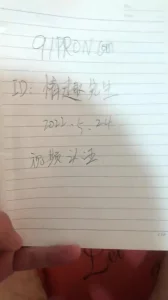 91PRON
ID: 情趣先生
2022.5.24
视频认证